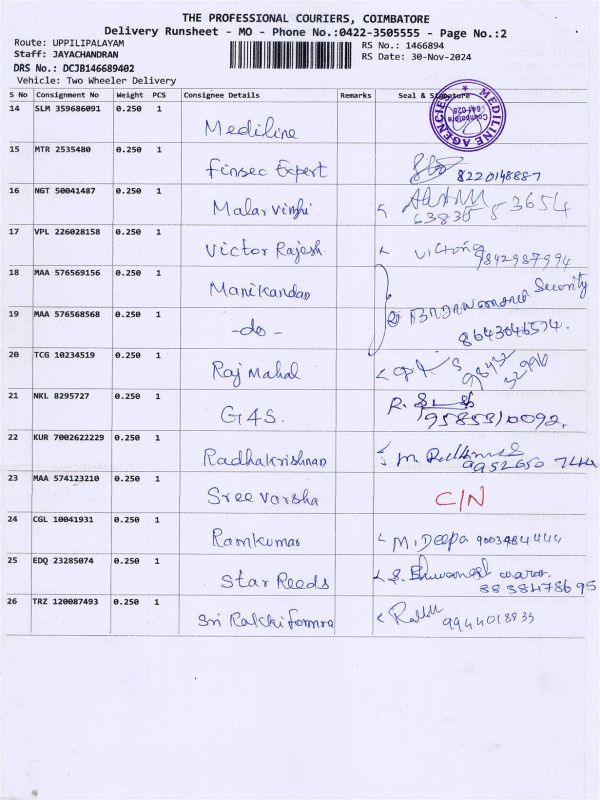 THE PROFESSIONAL COURIERS, COIMBATORE
Delivery Runsheet - MO - Phone No.:0422-3505555 - Page No.:2
Route: UPPILIPALAYAM
RS No.: 1466894
Staff: JAYACHANDRAN
RS Date: 30-Nov-2024
DRS No.: DCJB146689402
Vehicle: Two Wheeler Delivery
S No Consignment No Weight PCS Consignee Details Remarks Seal & Signature
14 SLM 359686091 0.250 1 Mediline
MEDILINE AGENCIES
Coimbatore
15 MTR 2535480 0.250 1 Finsec Expert
8220148887
16 NGT 50041487 0.250 1 Malarvinzhi
17 VPL 226028158 0.250 1 Victor Rajesh
9842987994
18 MAA 576569156 0.250 1 Manikandan
Security
19 MAA 576568568 0.250 1 -do-
8643046574.
20 TCG 10234519 0.250 1 Raj Mahal
21 NKL 8295727 0.250 1 G4S.
R.
9585310092.
22 KUR 7002622229 0.250 1 Radhakrishnan
23 MAA 574123210 0.250 1 Sree varsha C/N
24 CGL 10041931 0.250 1 Ramkumar M. Deepa 9003484444
25 EDQ 23285074 0.250 1 Star Reeds
8838478695
26 TRZ 120087493 0.250 1 Sri
9944018833